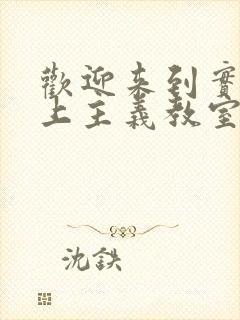 歡迎來到實
上主義教室
沈鉄